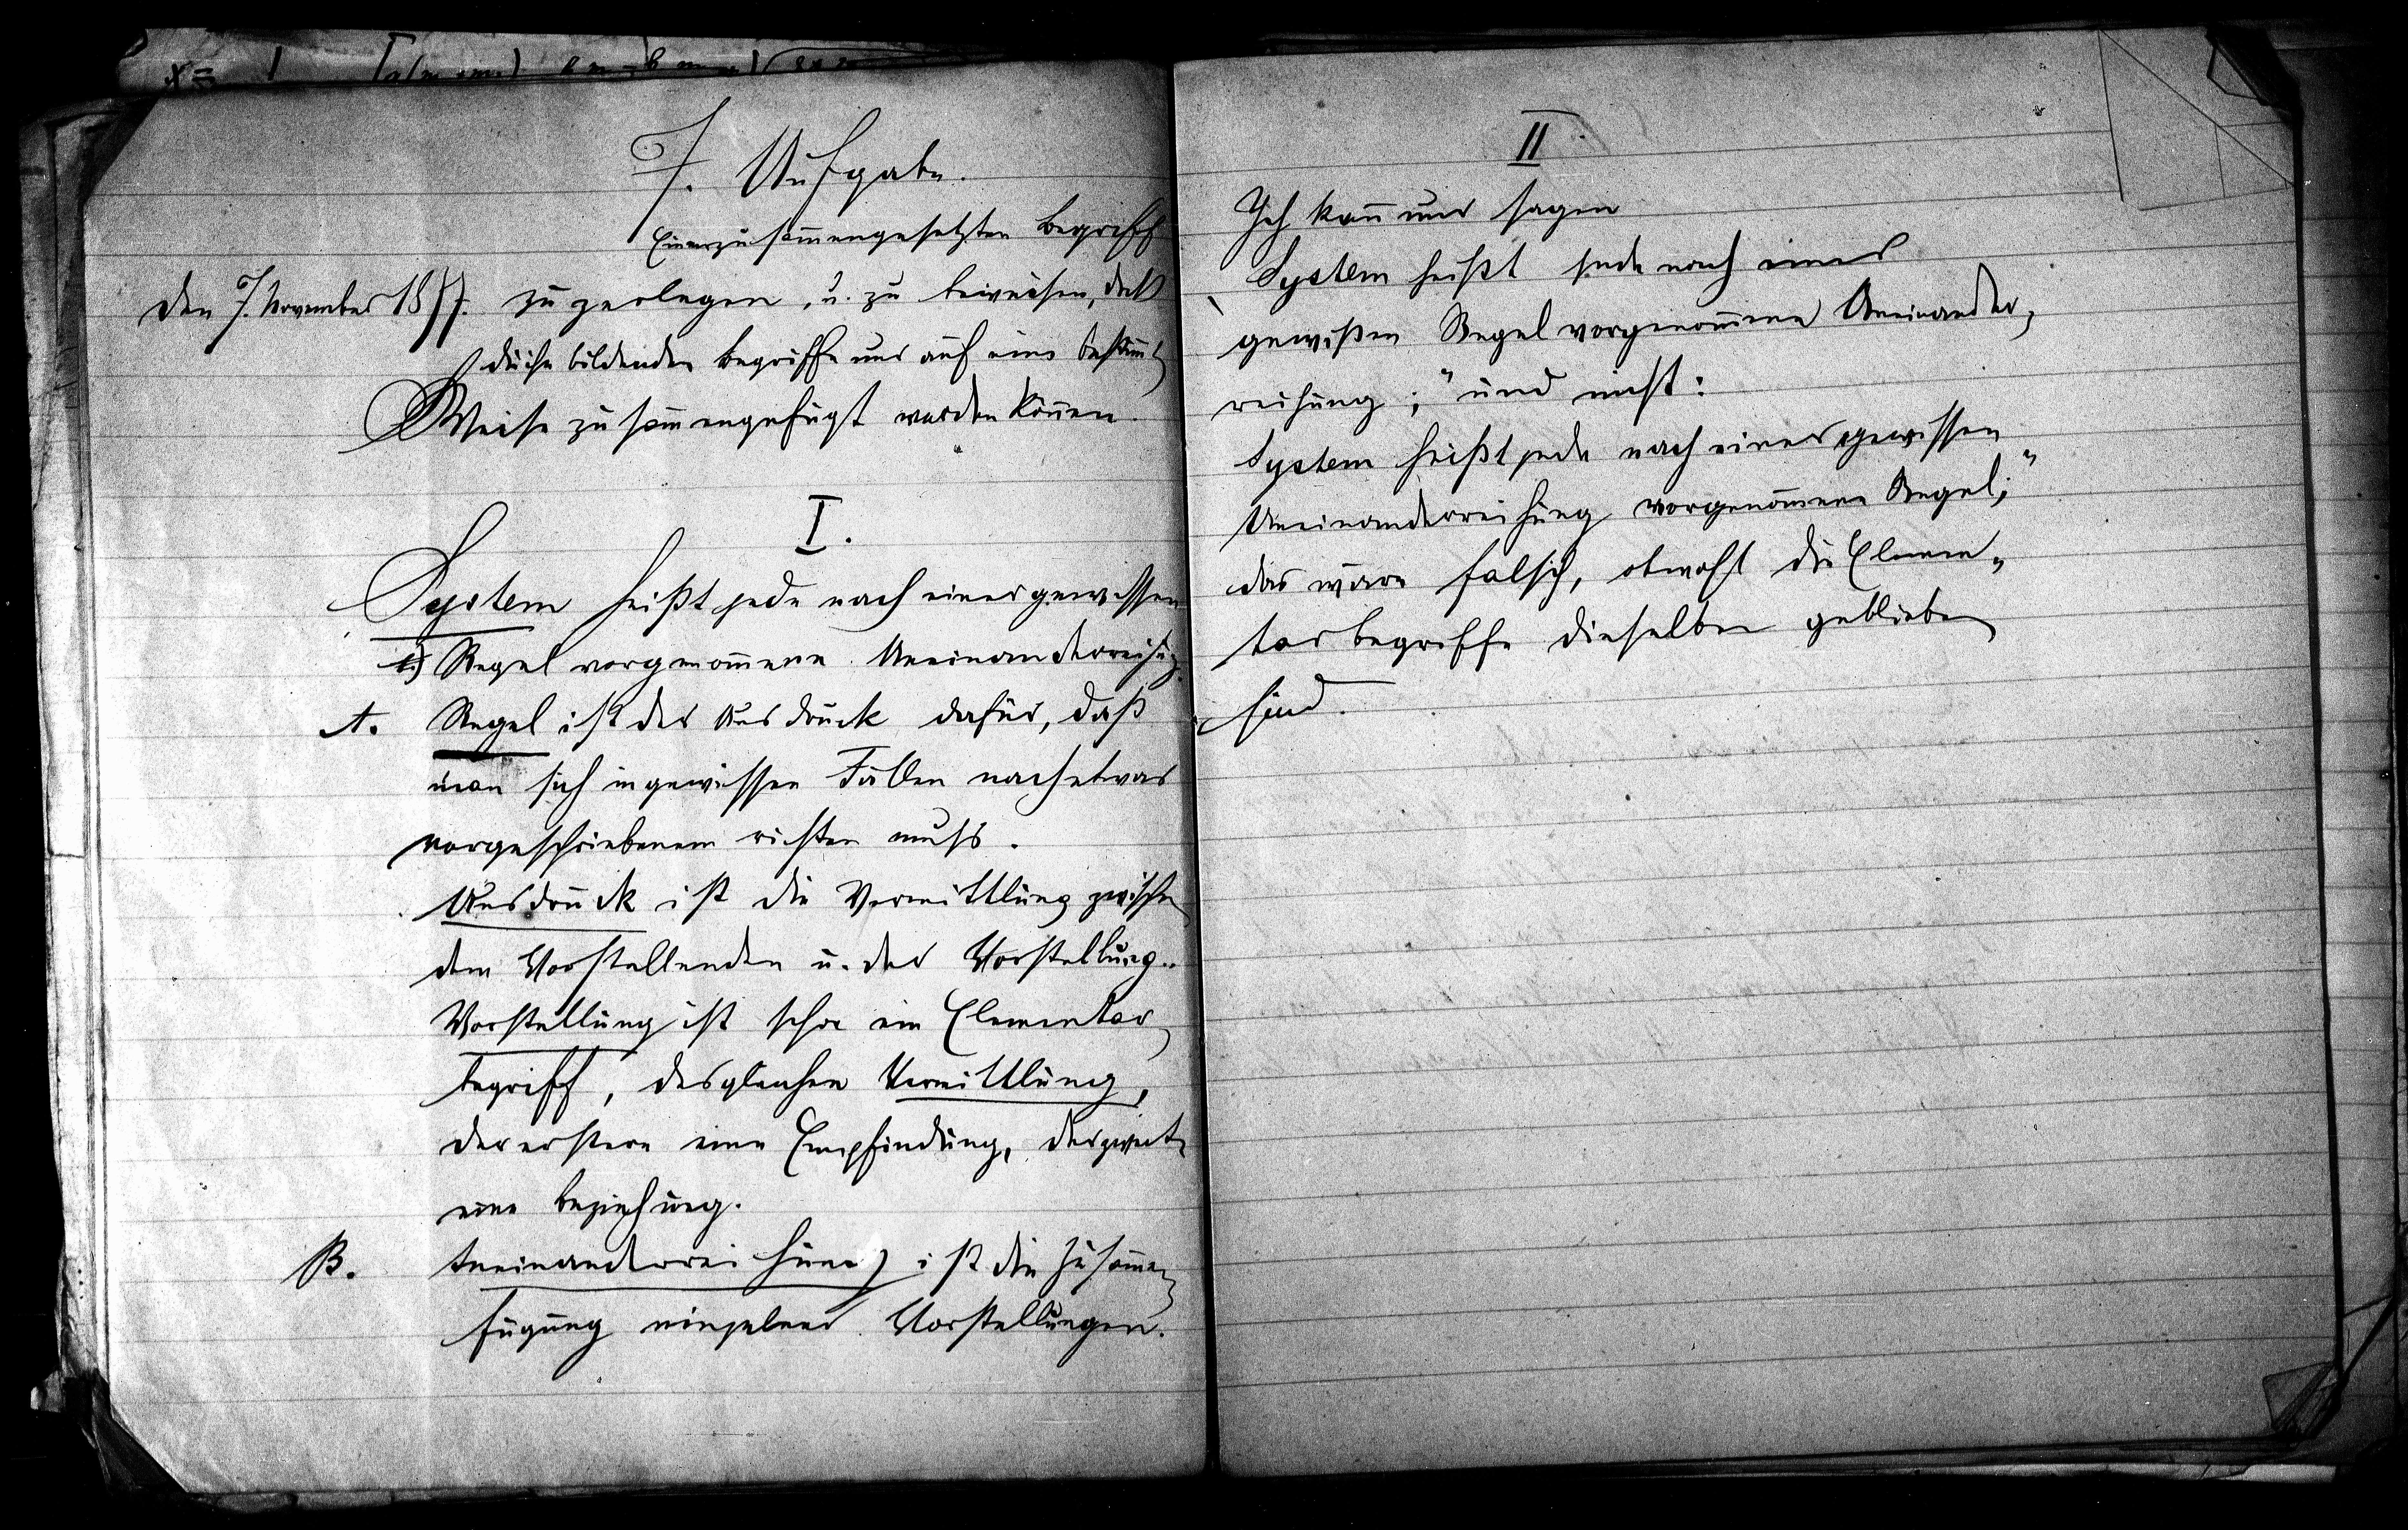 x =
7. Aufgabe.
Einen zusam̄engesetzten Begriff
Den 7. November 1877. zu zerlegen, u. zu beweisen, daß
die ihn bildenden Begriffe nur auf eine bestim̄te
Weise zusam̄engefügt werden kön̄en.
I.
System heißt jede nach einer gewissen
Regel vorgenom̄ene Aneinanderreihung.
A. Regel ist der Ausdruck dafür, daß
man sich in gewissen Fällen nach etwas
vorgeschriebenem richten muß.
Ausdruck ist die Vermittlung zwischen
dem Vorstellenden u. der Vorstellung.
Vorstellung ist schon ein Elementar
begriff, desgleichen Vermittlung,
der erstere eine Empfindung, der zweite
eine Beziehung.
B. Aneinanderreihung ist die Zusam̄en
fügung einzelner Vorstellungen.
II
Ich kan̄ nur sagen
System heißt jede nach einer
gewißen Regel vorgenom̄ene Aneinander,
reihung;" und nicht:
System heißt jede nach einer gewissen
Aneinanderreihung vorgenom̄ene Regel;"
das wäre falsch, obwohl die Elemen„
tarbegriffe dieselben geblieben
sind.